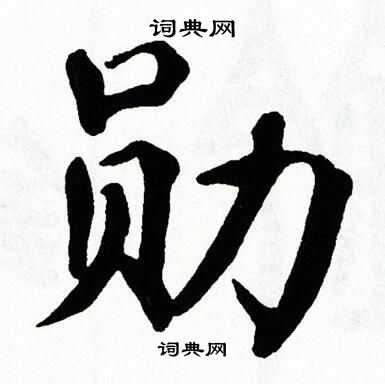 词典网
勋
词典网